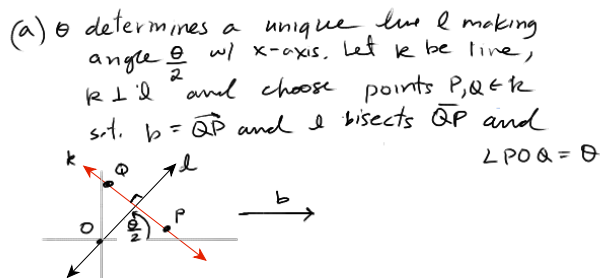 (a) θ determines a unique line l making
angle θ/2 w/ x-axis. Let k be line,
k ⊥ l and choose points P,Q ∈ k
s.t. b = \overrightarrow{QP} and l bisects \overline{QP} and
∠POQ = θ
k
Q
l
b
O
θ/2
P